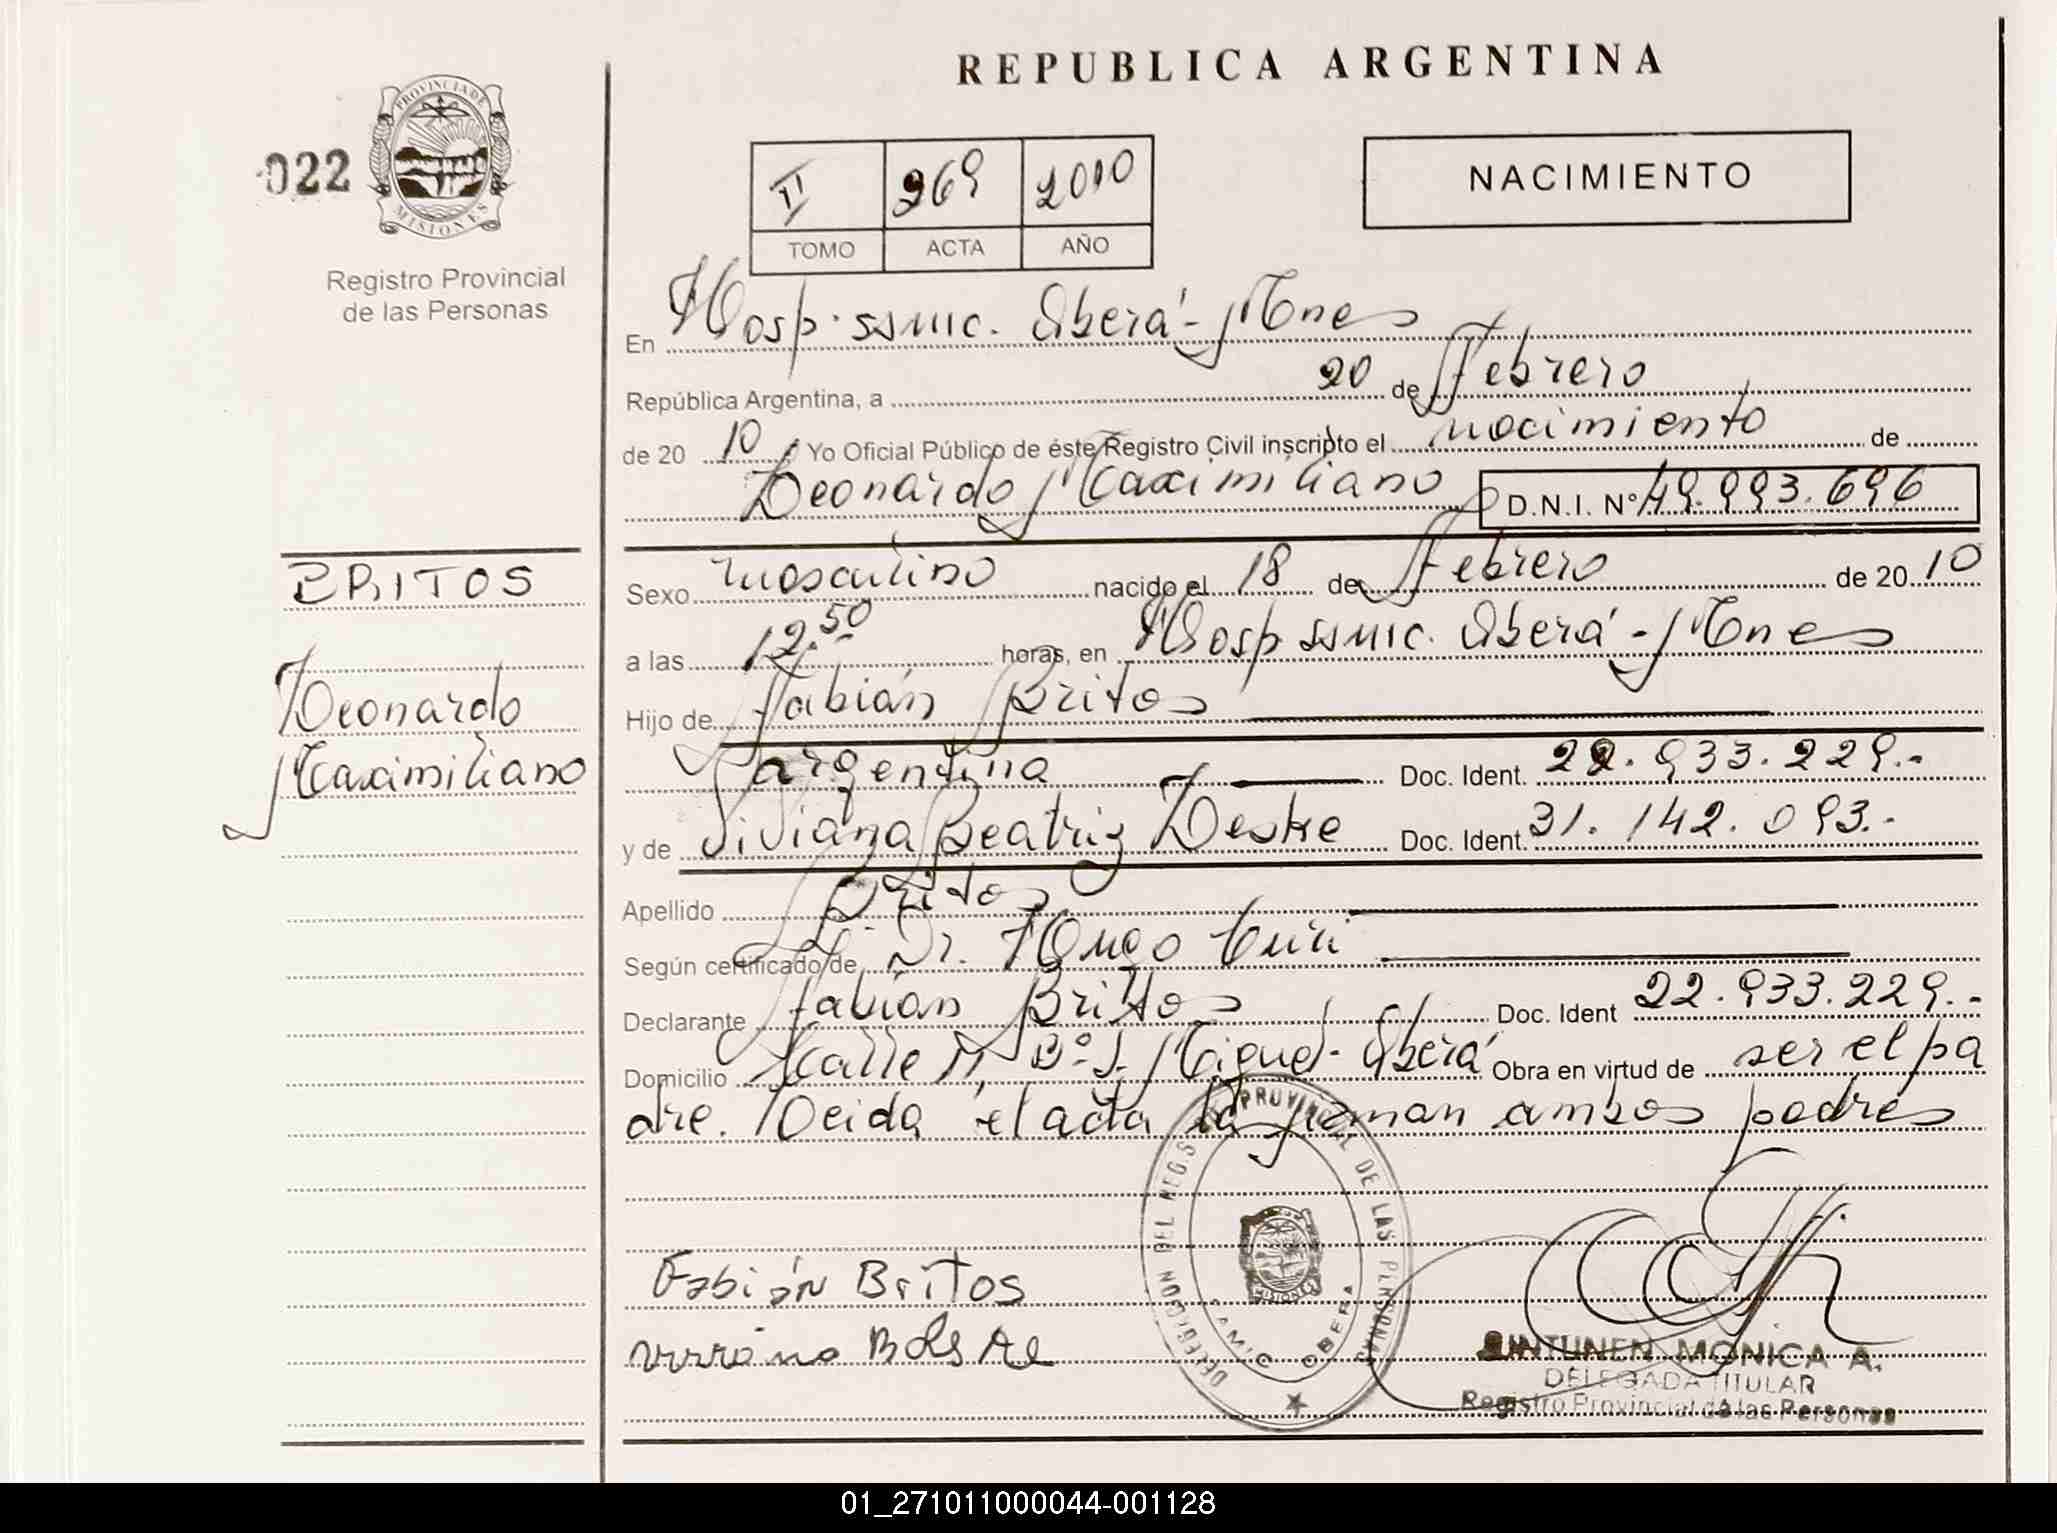 REPUBLICA ARGENTINA
022
PROVINCIA DE
MISIONES
Registro Provincial
de las Personas
II 269 2010
TOMO ACTA AÑO
NACIMIENTO
En Hosp. ssmic. Oberá - Mnes
República Argentina, a 20 de Febrero
de 20 10 Yo Oficial Público de éste Registro Civil inscripto el nacimiento de
Leonardo Maximiliano D.N.I. Nº 49.993.696
BRITOS
Leonardo
Maximiliano
Sexo masculino nacido el 18 de Febrero de 20 10
a las 12.50 horas, en Hosp ssmic. Oberá - Mnes
Hijo de Fabián Britos
argentina Doc. Ident. 22.933.229.-
y de Viviana Beatriz Doc. Ident. 31.142.093.-
Apellido Britos
Según certificado de Dr. Hugo
Declarante Fabián Britos Doc. Ident 22.933.229.-
Domicilio Calle Bº S. Miguel - Oberá Obra en virtud de ser el pa
dre. Leida el acta la firman ambos padres
Fabián Britos
DELEGACION DEL REG. PROVINCIAL DE LAS PERSONAS
MISIONES
OBERA
SINTUNEN MONICA A.
DELEGADA TITULAR
Registro Provincial de las Personas
01_271011000044-001128